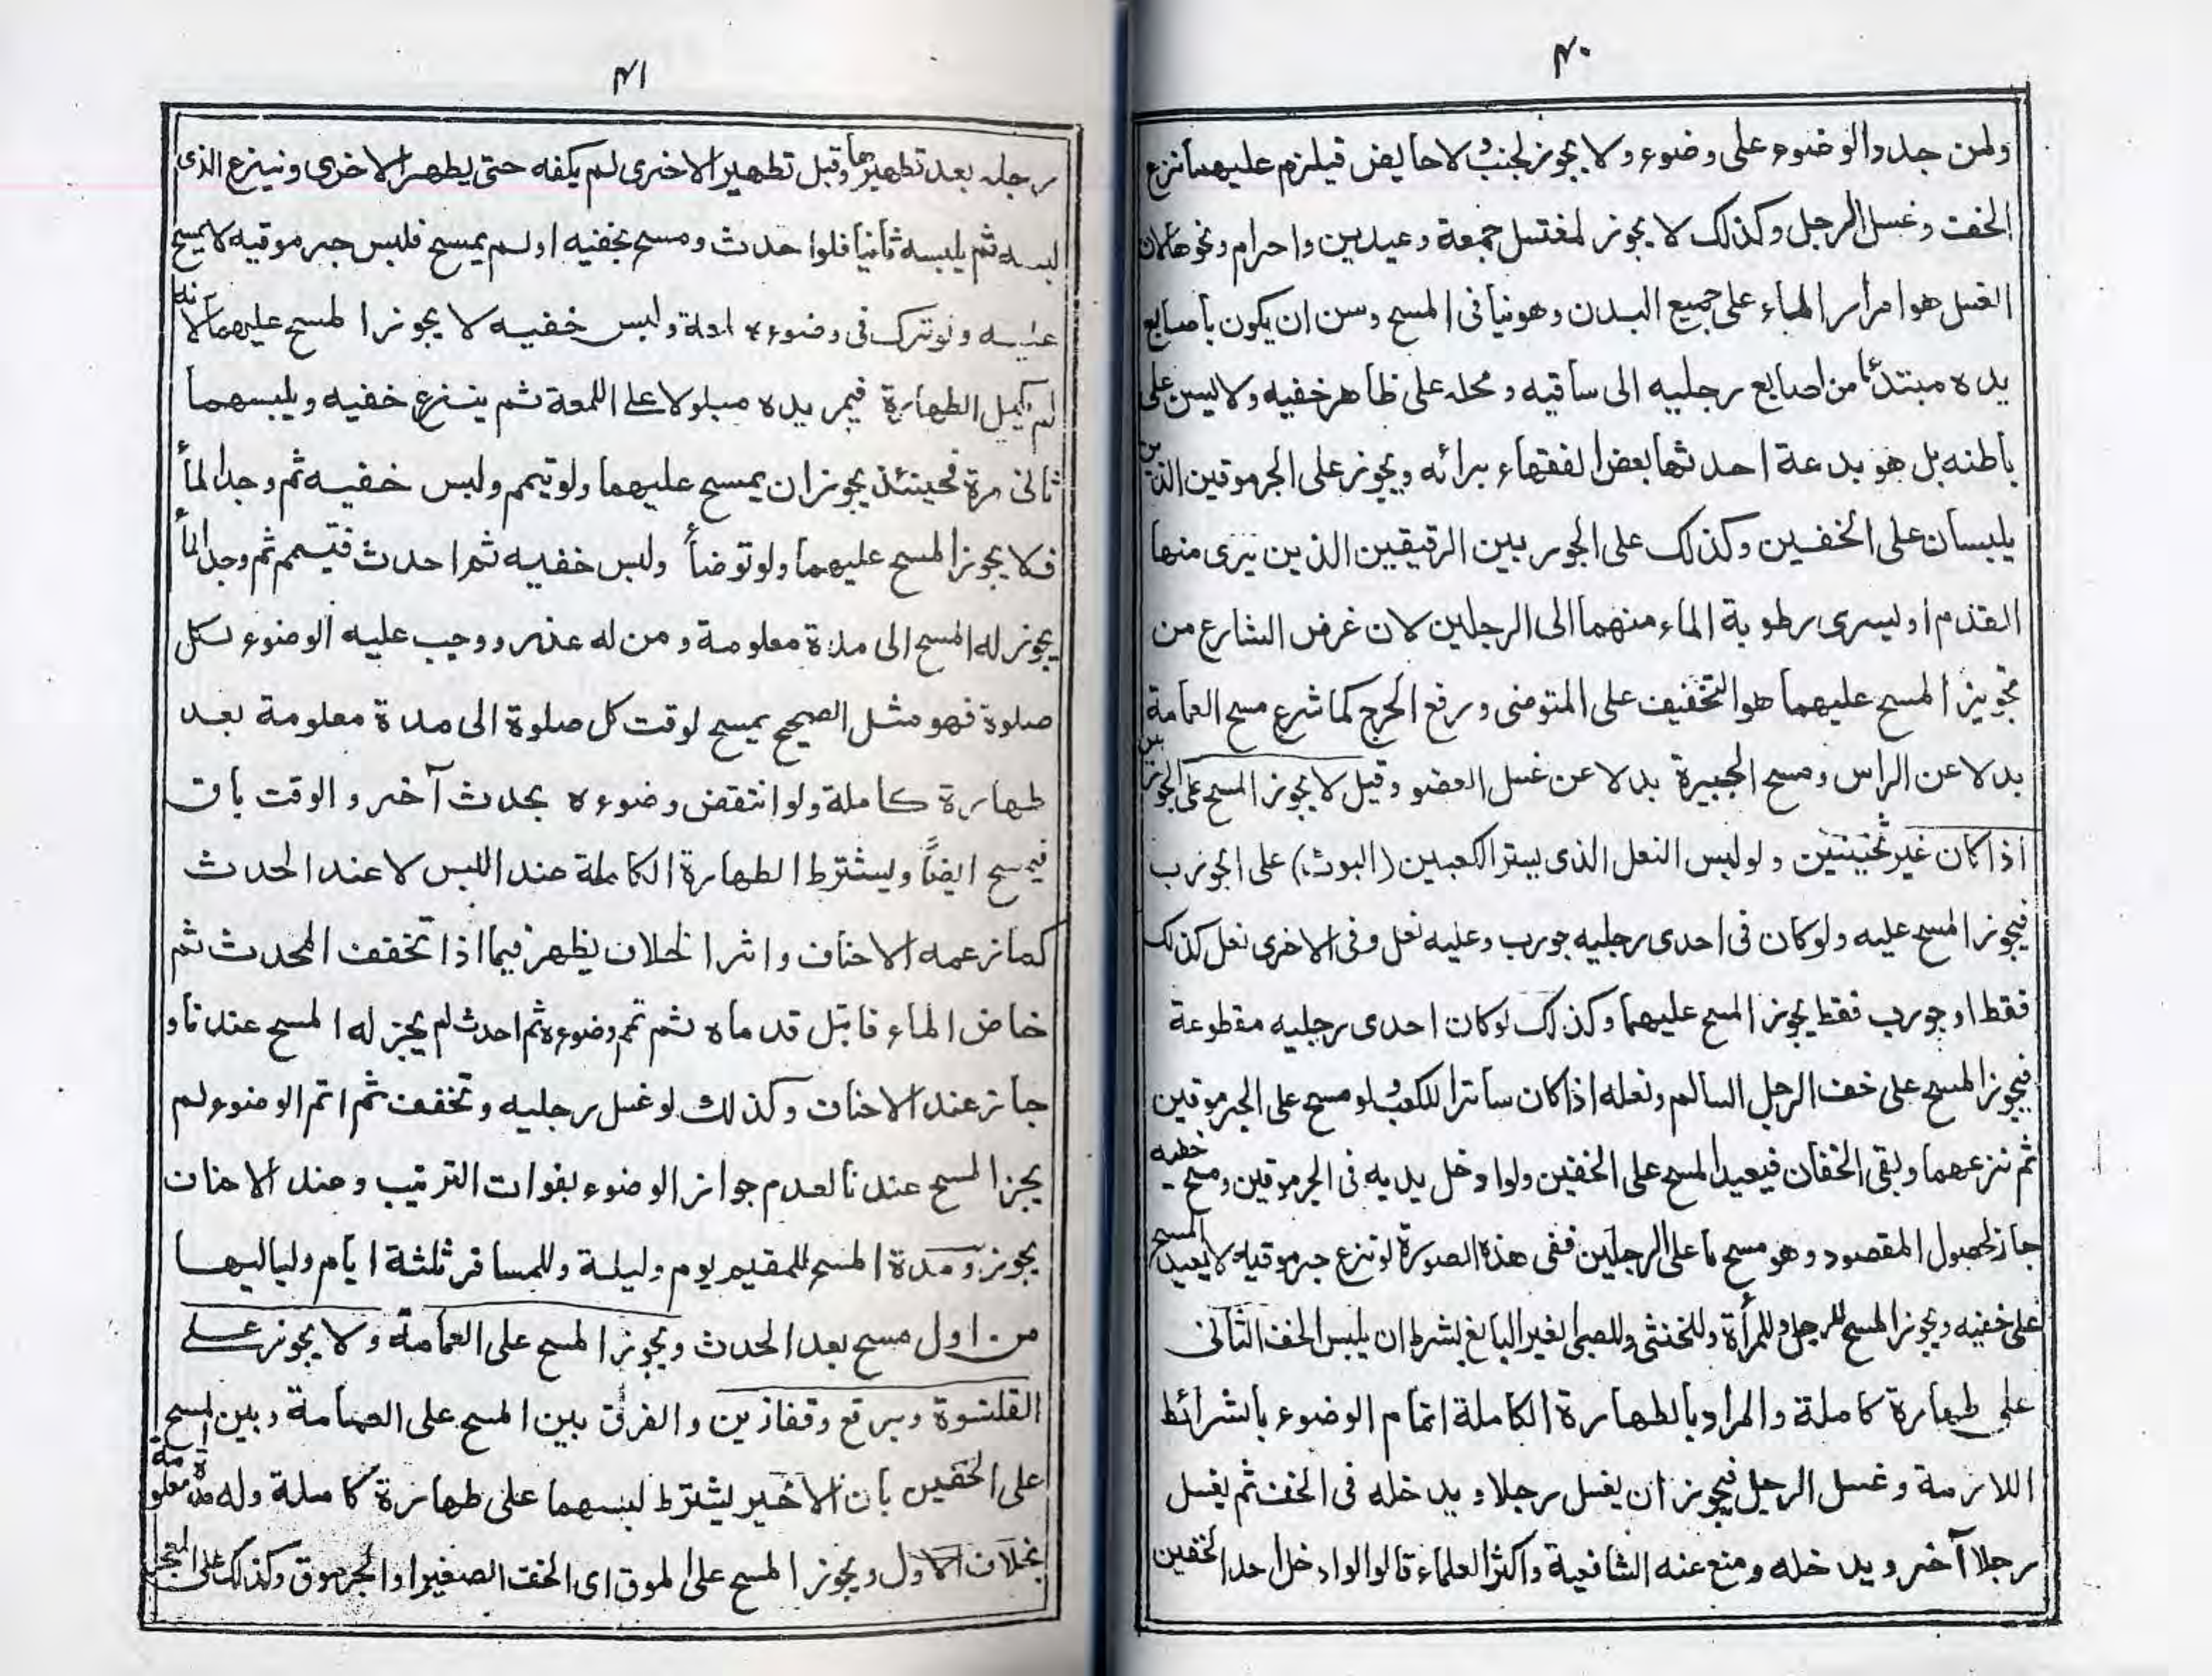 ٤٠
ولمن جدد الوضوء على وضوء ولا يجوز لجنب ولا حايض فيلزم عليهما نزع
الخف وغسل الرجل وكذلك لا يجوز لمغتسل جمعة وعيدين واحرام ونحوها لان
الغسل هو امرار الماء على جميع البدن وهو نيافى المسح وسن ان يكون باصابع
يده مبتدئا من اصابع رجليه الى ساقيه ومحله على ظاهر خفيه ولا يسن على
باطنه بل هو بدعة احدثها بعض الفقهاء برائه ويجوز على الجرموقين الذين
يلبسان على الخفين وكذلك على الجوربين الرقيقين الذين يرى منهما
القدم او ليسرى رطوبة الماء منهما الى الرجلين لان غرض الشارع من
تجويز المسح عليهما هو التخفيف على المتوضى ورفع الحرج كما شرع مسح العمامة
بدلا عن الراس ومسح الجبيرة بدلا عن غسل العضو وقيل لا يجوز المسح على الجوربين
اذا كان غير ثخينين ولو لبس النعل الذى يستر الكعبين (البوث) على الجورب
فيجوز المسح عليه ولو كان فى احدى رجليه جورب وعليه نعل وفى الاخرى نعل كذلك
فقط او جورب فقط يجوز المسح عليهما وكذلك لو كان احدى رجليه مقطوعة
فيجوز المسح على خف الرجل السالم ونعله اذا كان ساترا للكعب لو مسح على الجرموقين
ثم نزعهما وبقى الخفان فيعيد المسح على الخفين ولو ادخل يديه فى الجرموقين ومسح خفيه
جاز لحصول المقصود وهو مسح ما على الرجلين ففى هذه الصورة لو نزع جرموقيه لا يعيد المسح
على خفيه ويجوز المسح للرجل وللمرأة وللخنثى وللصبى لغير البالغ بشرط ان يلبس الخف الثانى
على طهارة كاملة والمراد بالطهارة الكاملة اتمام الوضوء بالشرائط
اللازمة وغسل الرجل فيجوز ان يغسل رجلا ويدخله فى الخف ثم يغسل
رجلا آخر ويدخله ومنع عنه الشافعية واكثر العلماء قالوا لو ادخل احد الخفين
٤١
رجله بعد تطهيرها وقبل تطهير الاخرى لم يكفه حتى يطهر الاخرى وينزع الذى
لبسه ثم يلبسه ثانيا فلو احدث ومسح بخفيه او لم يمسح فلبس جرموقيه لا يمسح
عليه ولو ترك فى وضوءه لمعة ولبس خفيه لا يجوز المسح عليهما لانه
لم يكمل الطهارة فيمر يده مبلولا على اللمعة ثم ينزع خفيه ويلبسهما
ثانى مرة فحينئذ يجوز ان يمسح عليهما ولو تيمم ولبس خفيه ثم وجد الماء
فلا يجوز المسح عليهما ولو توضأ ولبس خفيه ثم احدث فتيمم ثم وجد الماء
يجوز له المسح الى مدة معلومة ومن له عذر ووجب عليه الوضوء لكل
صلوة فهو مثل الصحيح يمسح لوقت كل صلوة الى مدة معلومة بعد
طهارة كاملة ولو انتقض وضوءه بحدث آخر والوقت باق
فيمسح ايضاً ويشترط الطهارة الكاملة عند اللبس لا عند الحدث
كما زعمه الاحناف واثر الخلاف يظهر فيما اذا تخفف المحدث ثم
خاض الماء فابتل قدماه ثم تمم وضوءه ثم احدث لم يجز له المسح عندنا و
جاز عند الاحناف وكذلك لو غسل رجليه وتخفف ثم اتم الوضوء لم
يجز المسح عندنا لعدم جواز الوضوء بفوات الترتيب وعند الاحناف
يجوز ومدة المسح للمقيم يوم وليلة وللمسافر ثلثة ايام ولياليها
من اول مسح بعد الحدث ويجوز المسح على العمامة ولا يجوز على
القلنسوة وبرقع وقفازين والفرق بين المسح على العمامة وبين المسح
على الخفين بان الاخير يشترط لبسهما على طهارة كاملة وله مدة معلومة
بخلاف الاول ويجوز المسح على الموق اى الخف الصغير او الجرموق وكذلك على